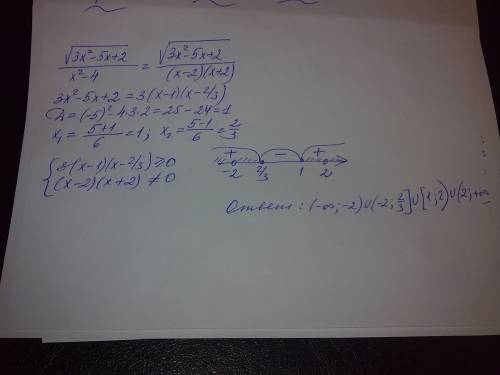 √3x²-5x+2 / x²-4 = √3x²-5x+2 / (x-2)(x+2)
3x²-5x+2 = 3(x-1)(x-2/3)
D = (-5)²-4·3·2 = 25-24 = 1
x₁ = 5+1/6 = 1; x₂ = 5-1/6 = 2/3
{3(x-1)(x-2/3) ≥ 0
{(x-2)(x+2) ≠ 0
+ - +
-2 2/3 1 2
Ответ: (-∞; -2)∪(-2; 2/3]∪[1; 2)∪(2; +∞